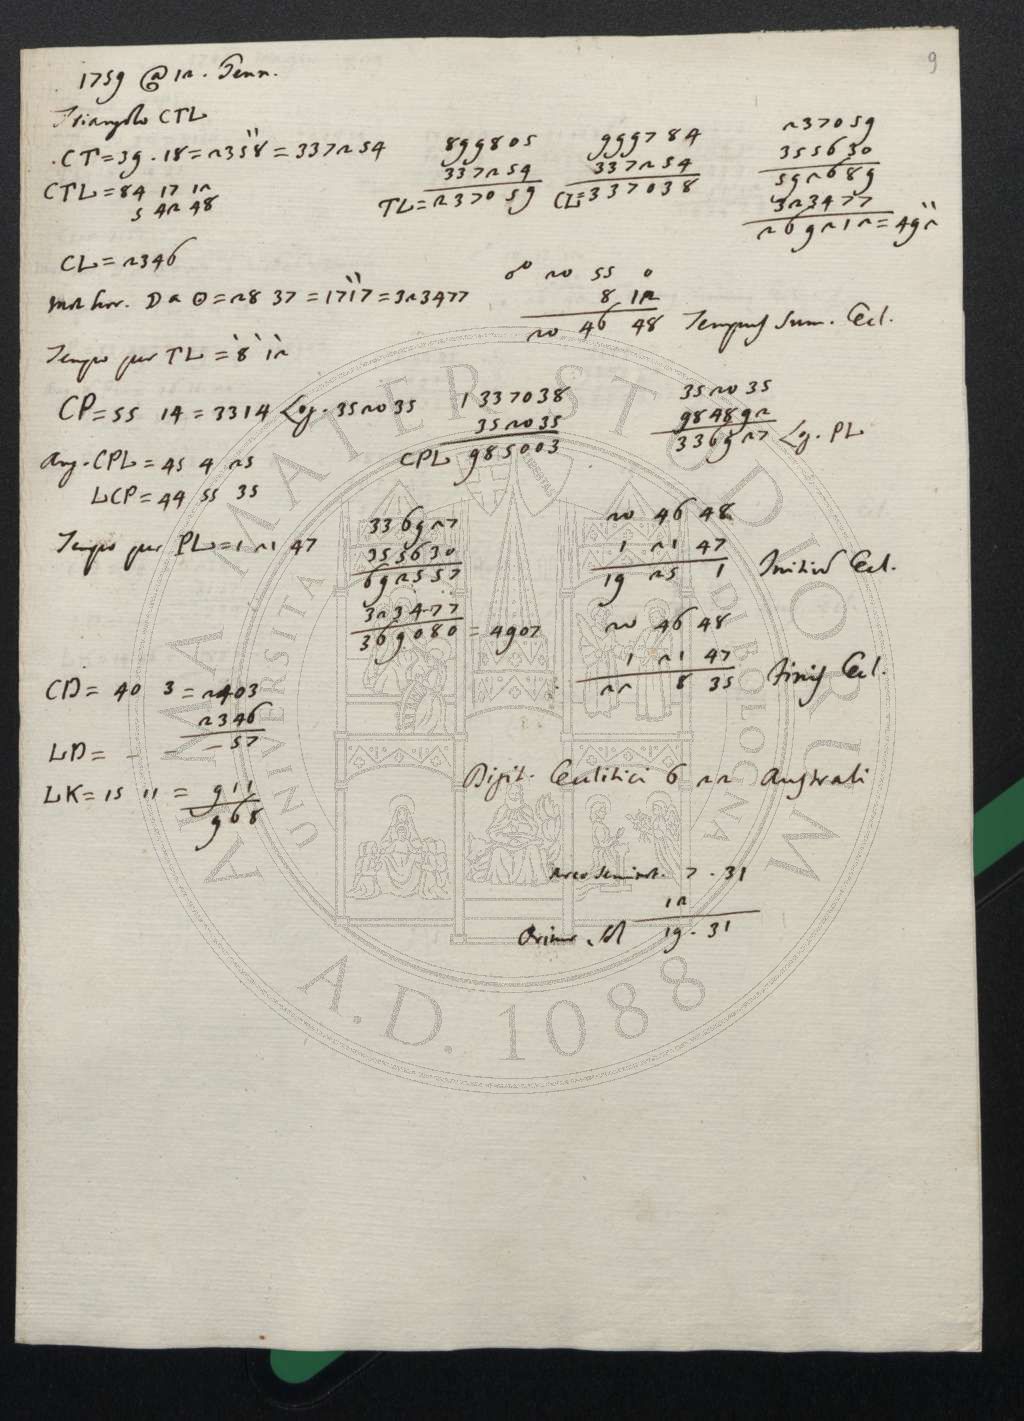 9
1759 @ 12. Genn.
Triangolo CTL
CT = 39 . 18 = 2358'' = 337254
CTL = 84 17 12
5 42 48
899805
337254
TL = 237059
999784
337254
CL = 337038
237059
355630
592689
323477
269212 = 492''
CL = 2346
Mot hor. D a ☉ = 28 37 = 1717'' = 323477
Tempo per TL = 8' 12''
0° 20 55 0
8 12
20 46 48 Tempus Sum. Ecl.
CP = 55 14 = 3314 Log. 352035
1337038
352035
CPL 985003
352035
984892
336927 Log. PL
Ang. CPL = 45 4 25
LCP = 44 55 35
Tempo per PL = 1 21 47
336927
355630
692557
323477
369080 = 4907
20 46 48
1 21 47
19 25 1 Initium Ecl.
20 46 48
1 21 47
22 8 35 Finis Ecl.
CD = 40 3 = 2403
2346
LD = - - - 57
LK = 15 11 = 911
968
Digit. Ecclitici 6 22 Australi
Arco Seminot. 7 . 31
12
19 . 31
ALMA MATER STUDIORUM
UNIVERSITÀ DI BOLOGNA
A.D. 1088